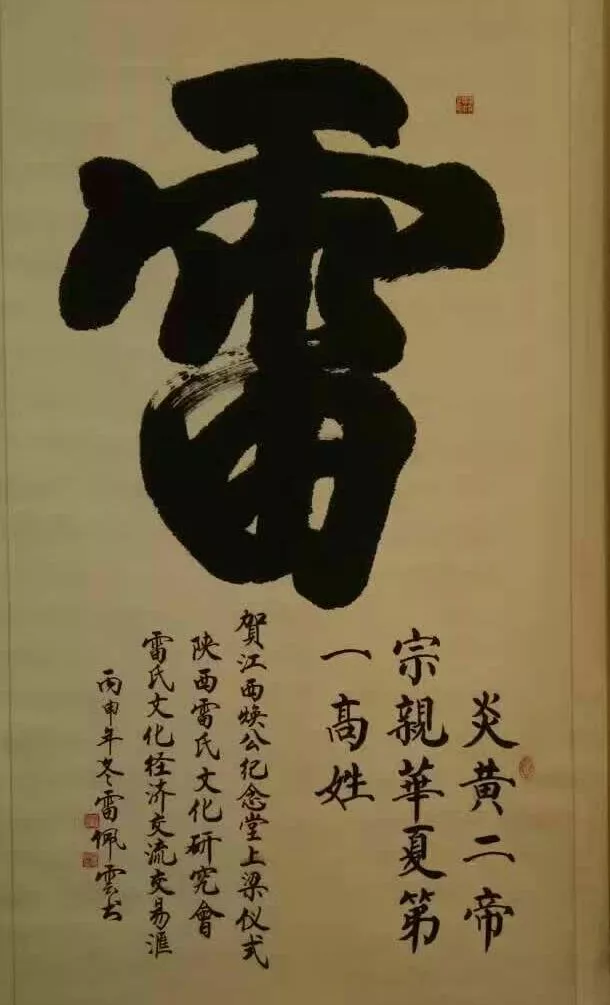 雷
炎黄二帝
宗親華夏第
一高姓
賀江西焕公纪念堂上梁仪式
陕西雷氏文化研究會
雷氏文化经济交流交易滙
丙申年冬雷佩雲书